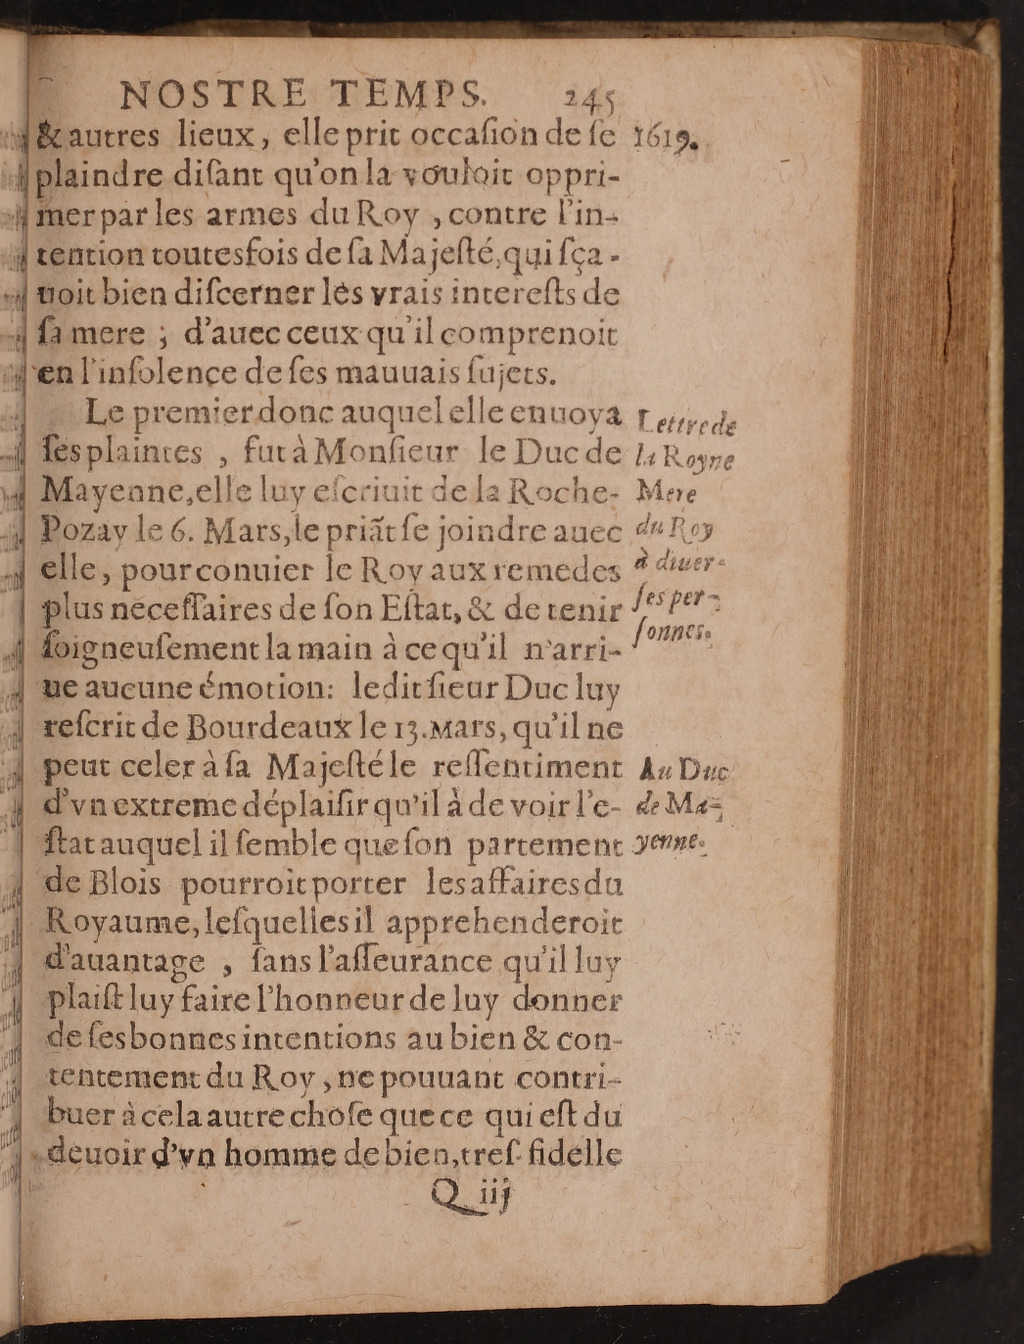 NOSTRE TEMPS. 245
& autres lieux, elle prit occaſion de ſe 1619.
plaindre diſant qu'on la vouloit oppri-
mer par les armes du Roy, contre l'in-
tention toutesfois de ſa Majeſté, qui ſça-
uoit bien diſcerner les vrais intereſts de
ſa mere ; d'auec ceux qu'il comprenoit
en l'inſolence de ſes mauuais ſujets.
Le premier donc auquel elle enuoya
ſes plaintes , fut à Monſieur le Duc de
Mayenne, elle luy eſcriuit de la Roche-
Pozay le 6. Mars, le priāt ſe joindre auec
elle, pour conuier le Roy aux remedes
plus neceſſaires de ſon Eſtat, & de tenir
ſoigneuſement la main à ce qu'il n'arri-
ue aucune émotion: ledit ſieur Duc luy
reſcrit de Bourdeaux le 13. Mars, qu'il ne
peut celer à ſa Majeſté le reſſentiment
d'vn extreme déplaiſir qu'il à de voir l'e-
ſtat auquel il ſemble que ſon partement
de Blois pourroit porter les affaires du
Royaume, leſquelles il apprehenderoit
d'auantage , ſans l'aſſeurance qu'il luy
plaiſt luy faire l'honneur de luy donner
de ſes bonnes intentions au bien & con-
tentement du Roy, ne pouuant contri-
buer à cela autre choſe que ce qui eſt du
deuoir d'vn homme de bien, treſ-fidelle
Q iij
Lettre de
la Royne
Mere
du Roy
à diuer-
ſes per-
ſonnes.
Au Duc
de Ma-
yenne.